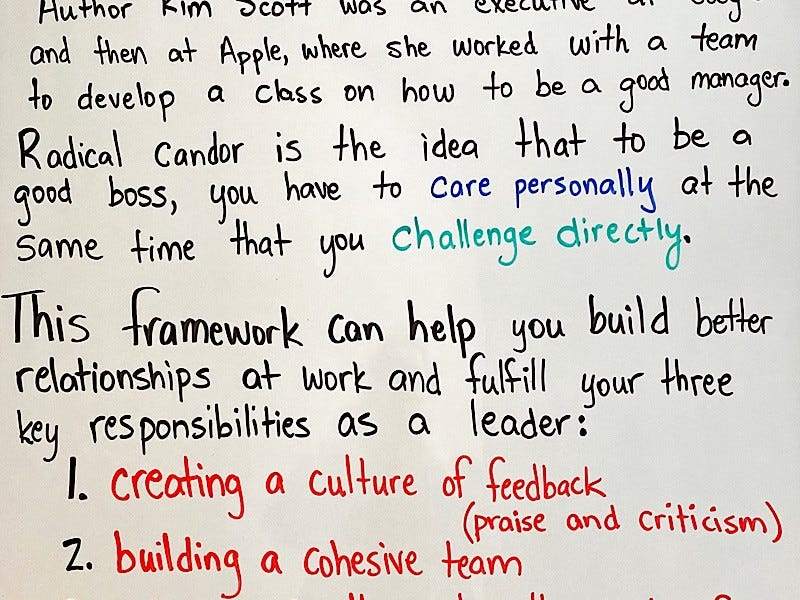 Author Kim Scott was an executive at
and then at Apple, where she worked with a team
to develop a class on how to be a good manager.
Radical Candor is the idea that to be a
good boss, you have to care personally at the
same time that you challenge directly.
This framework can help you build better
relationships at work and fulfill your three
key responsibilities as a leader:
1. creating a culture of feedback
(praise and criticism)
2. building a cohesive team